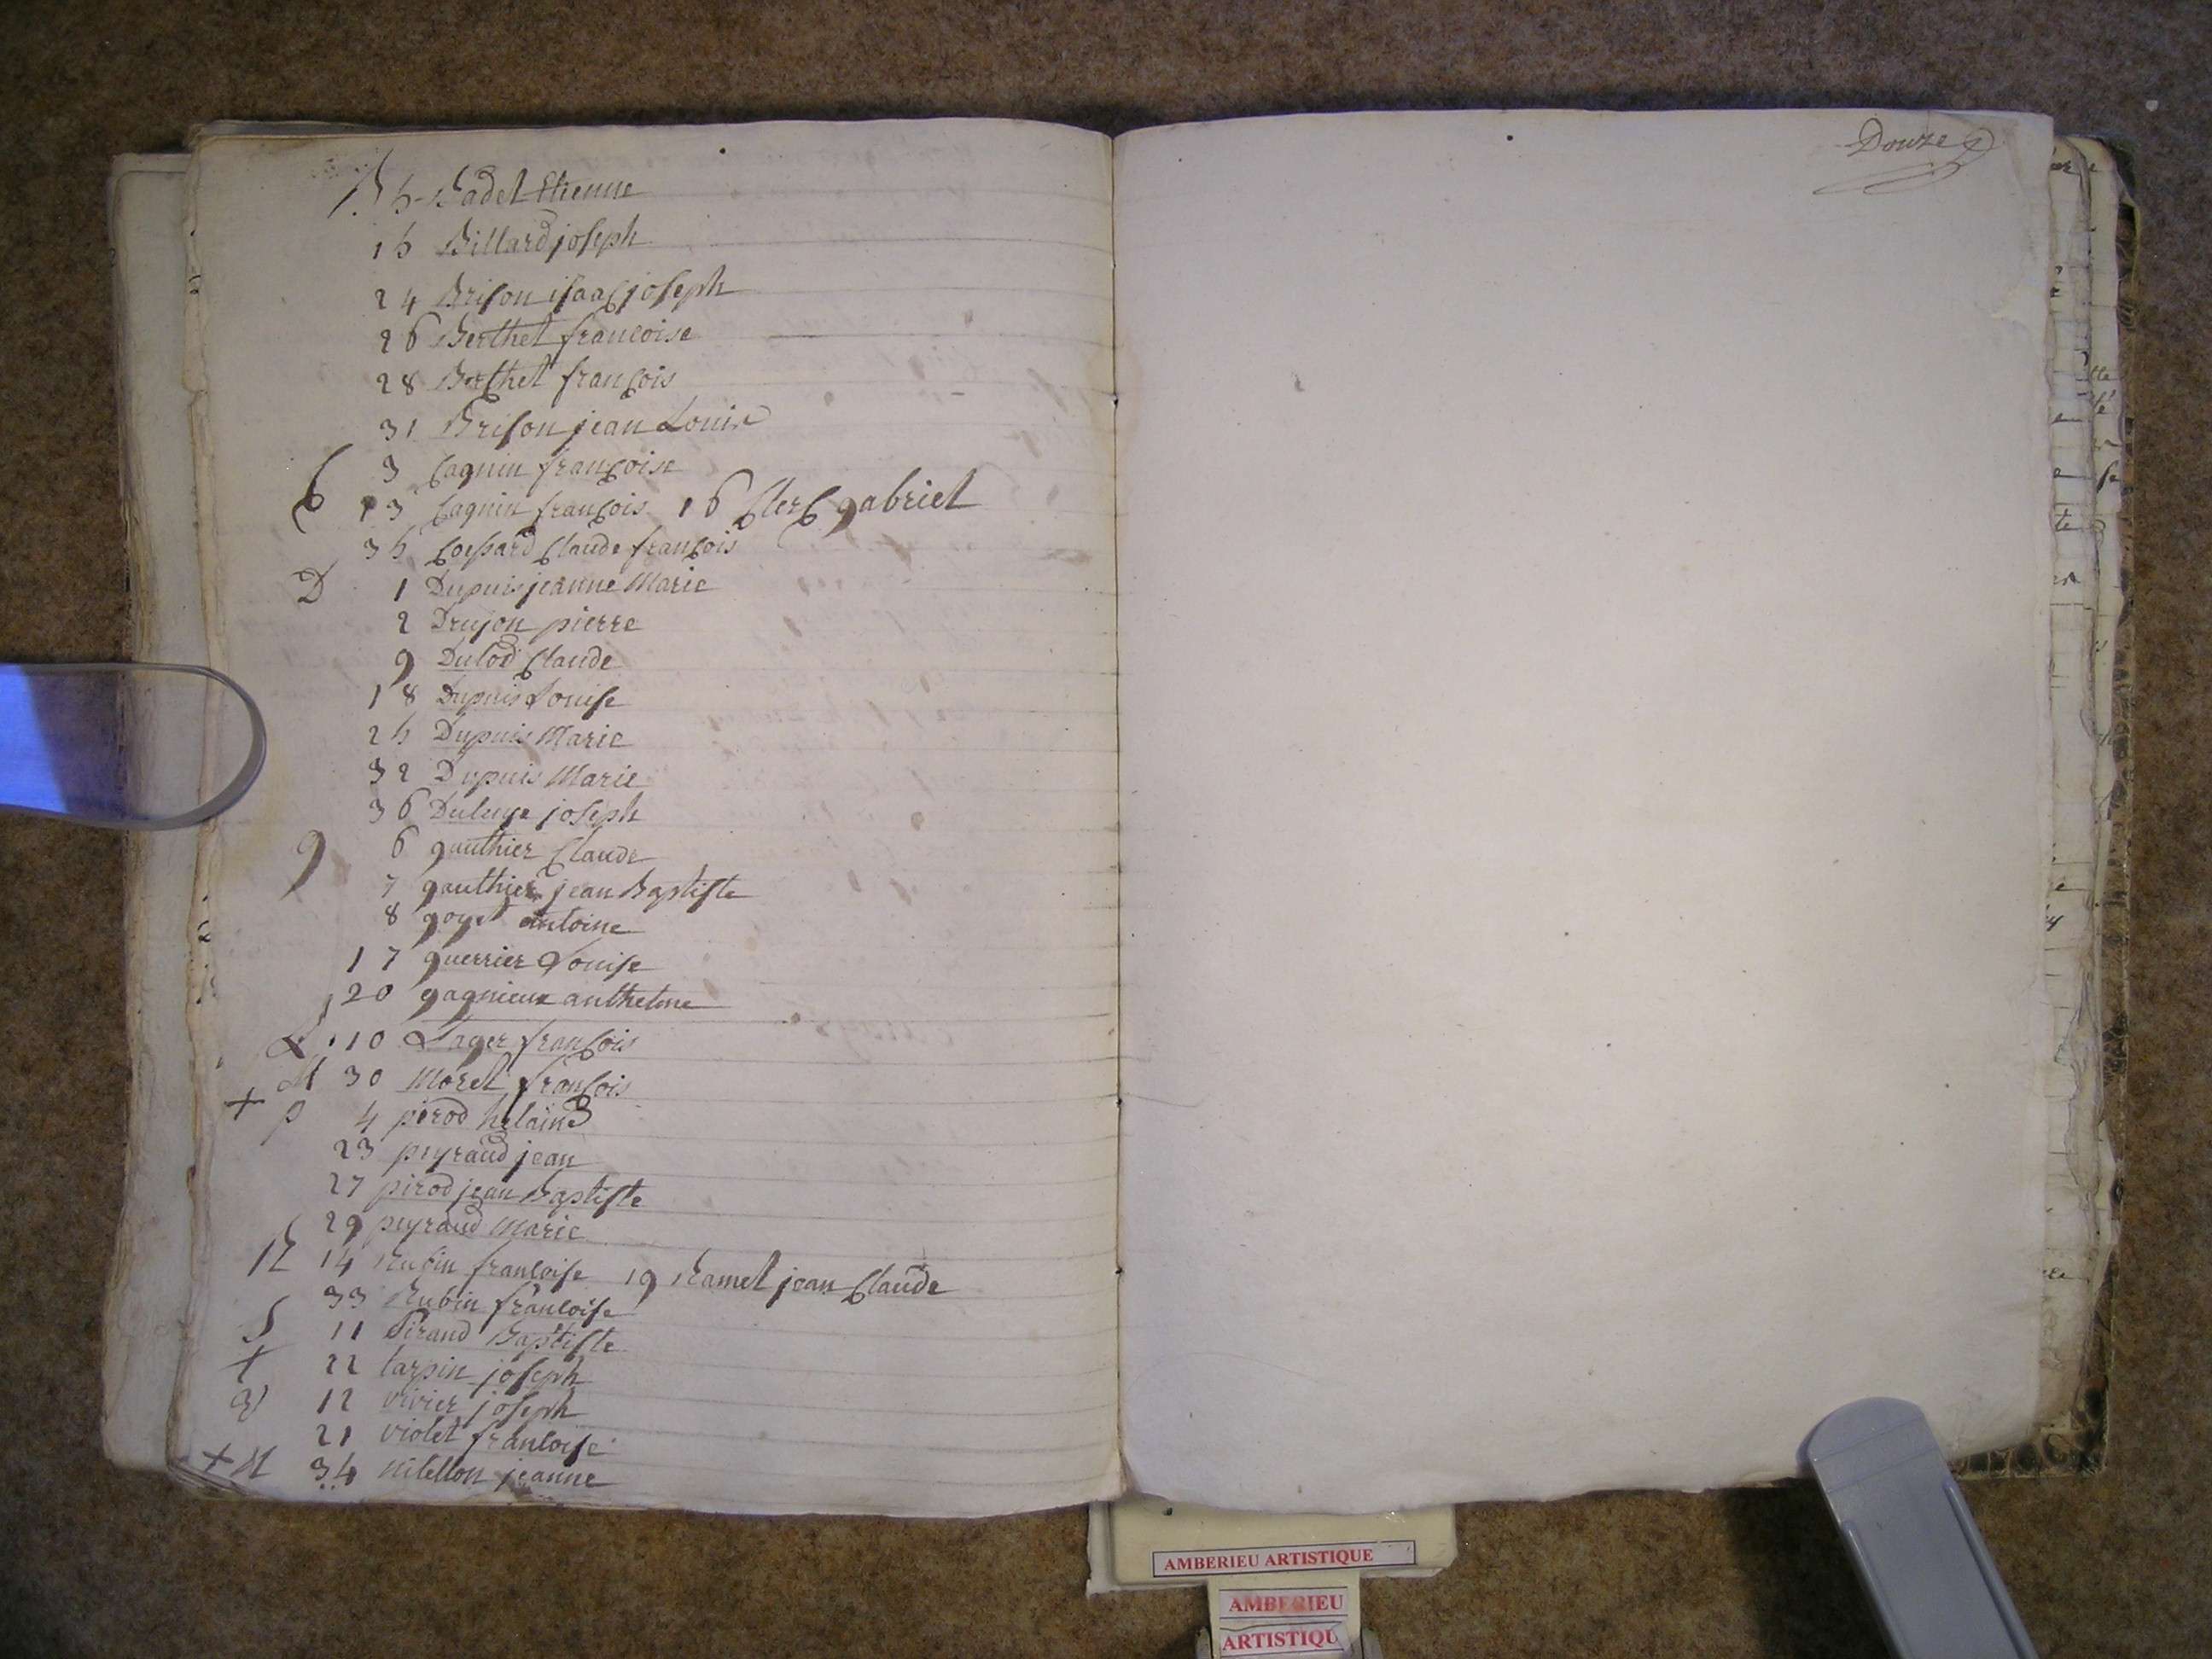 B 5 Badet Etienne
15 Billard joseph
24 Brison isaac joseph
26 Berthet francoise
28 Berthet françois
31 Brison jean Louis
3 Cagnin françoise
C 13 Cagnin françois 16 Clerc gabriel
35 Claude françois
D 1 Dupuis jeanne Marie
2 Drujon pierre
9 Dulod Claude
18 Dupuis Louise
25 Dupuis Marie
32 Dupuis Marie
36 joseph
g 6 gauthier Claude
7 gauthier jean Baptiste
8 goyet antoine
17 guerrier Louise
20 gagnieux anthelme
L 10 Lager françois
M 30 Moret françois
+ p 4 pirod helaine
23 peyraud jean
27 pirod jean Baptiste
29 peyraud Marie
R 14 Rubin francoise 19 Ramel jean Claude
33 Rubin francoise
S 11 Sirand Baptiste
t 22 tarpin joseph
V 12 vivier joseph
21 violet francoise
+ M 34 jeanne
Douze
AMBERIEU ARTISTIQUE
AMBERIEU
ARTISTIQU